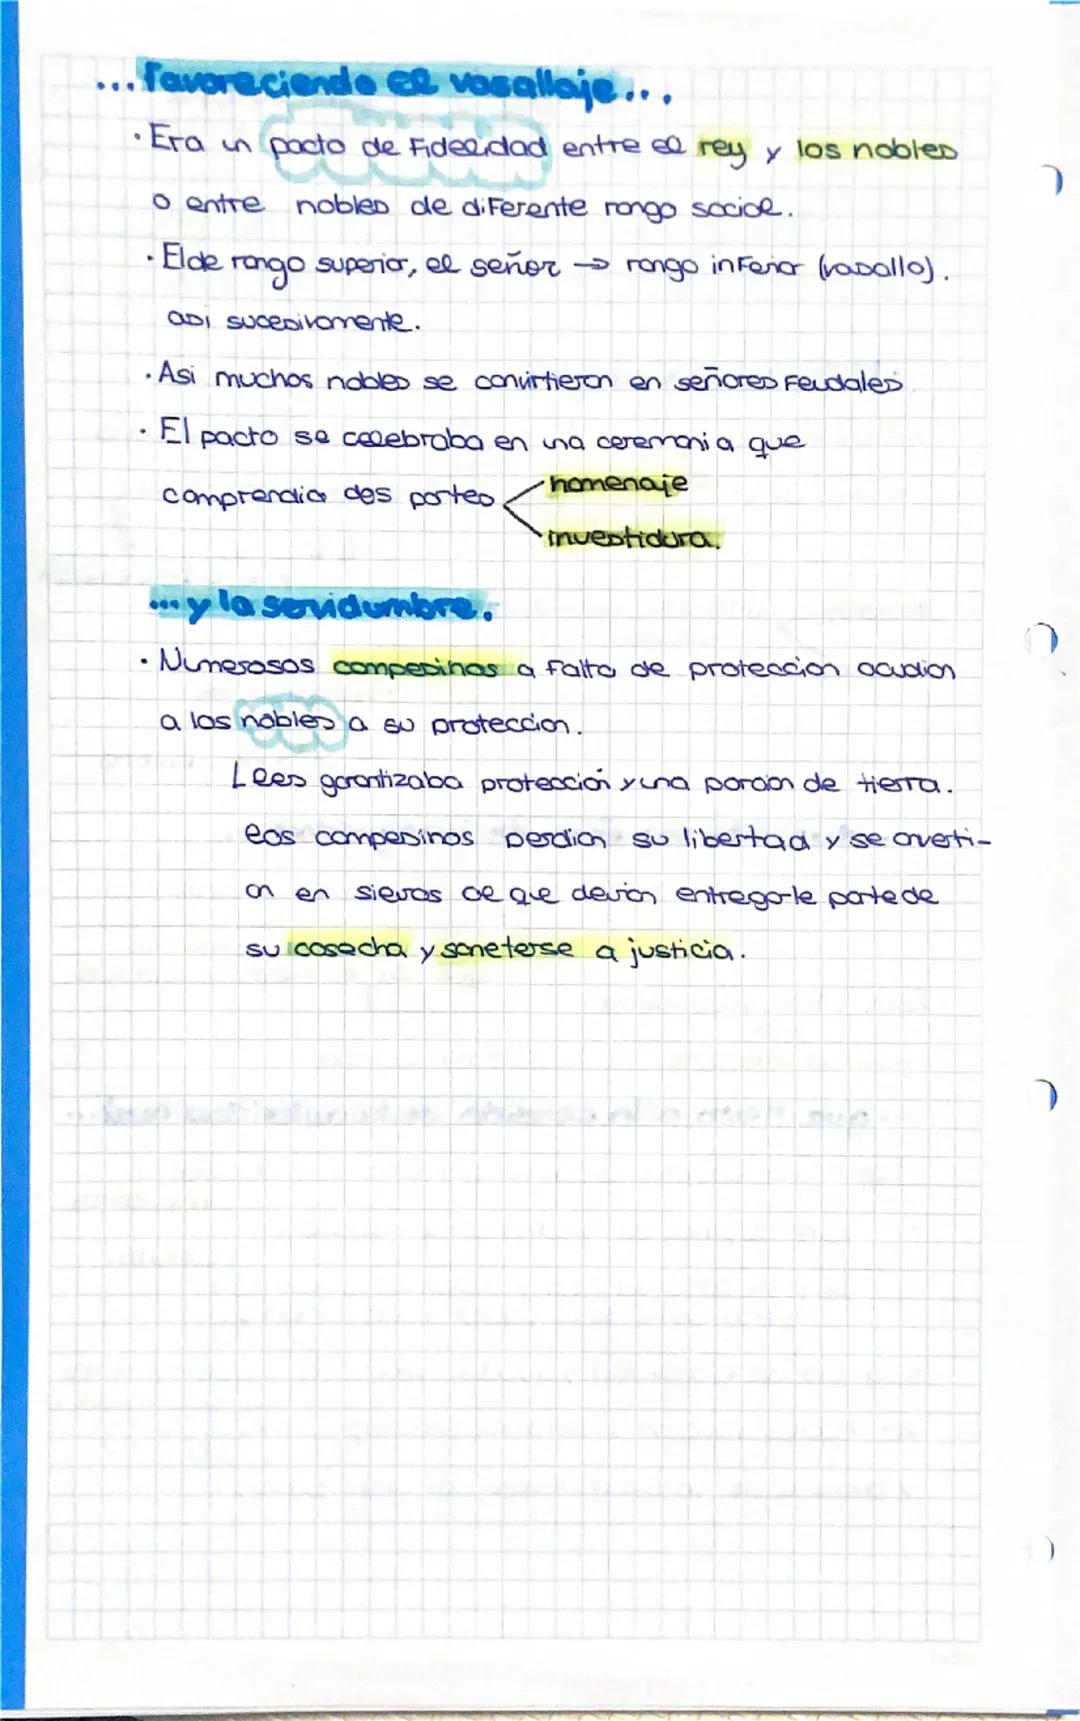 ...favoreciendo el vasallaje...
· Era un pacto de Fidelidad entre el rey y los nobles
o entre nobles de diferente rango social.
· El de rango superior, el señor → rango inferior (vasallo).
asi sucesivamente.
· Asi muchos nobles se convirtieron en señores Feudales
· El pacto se celebraba en una ceremonia que
comprendia dos partes homenaje
investidura.
... y la servidumbre.
· Numerosos campesinos a falta de proteccion acudian
a los nobles a su proteccion.
Les garantizaba protección y una porcion de tierra.
los campesinos perdian su libertad y se
en siervos de que devian entregarle parte de
su cosecha y someterse a justicia.